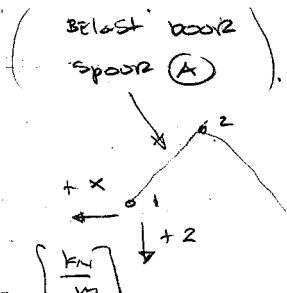 BElast door
Spoor A
2
+ x
1
+ z
kN
m